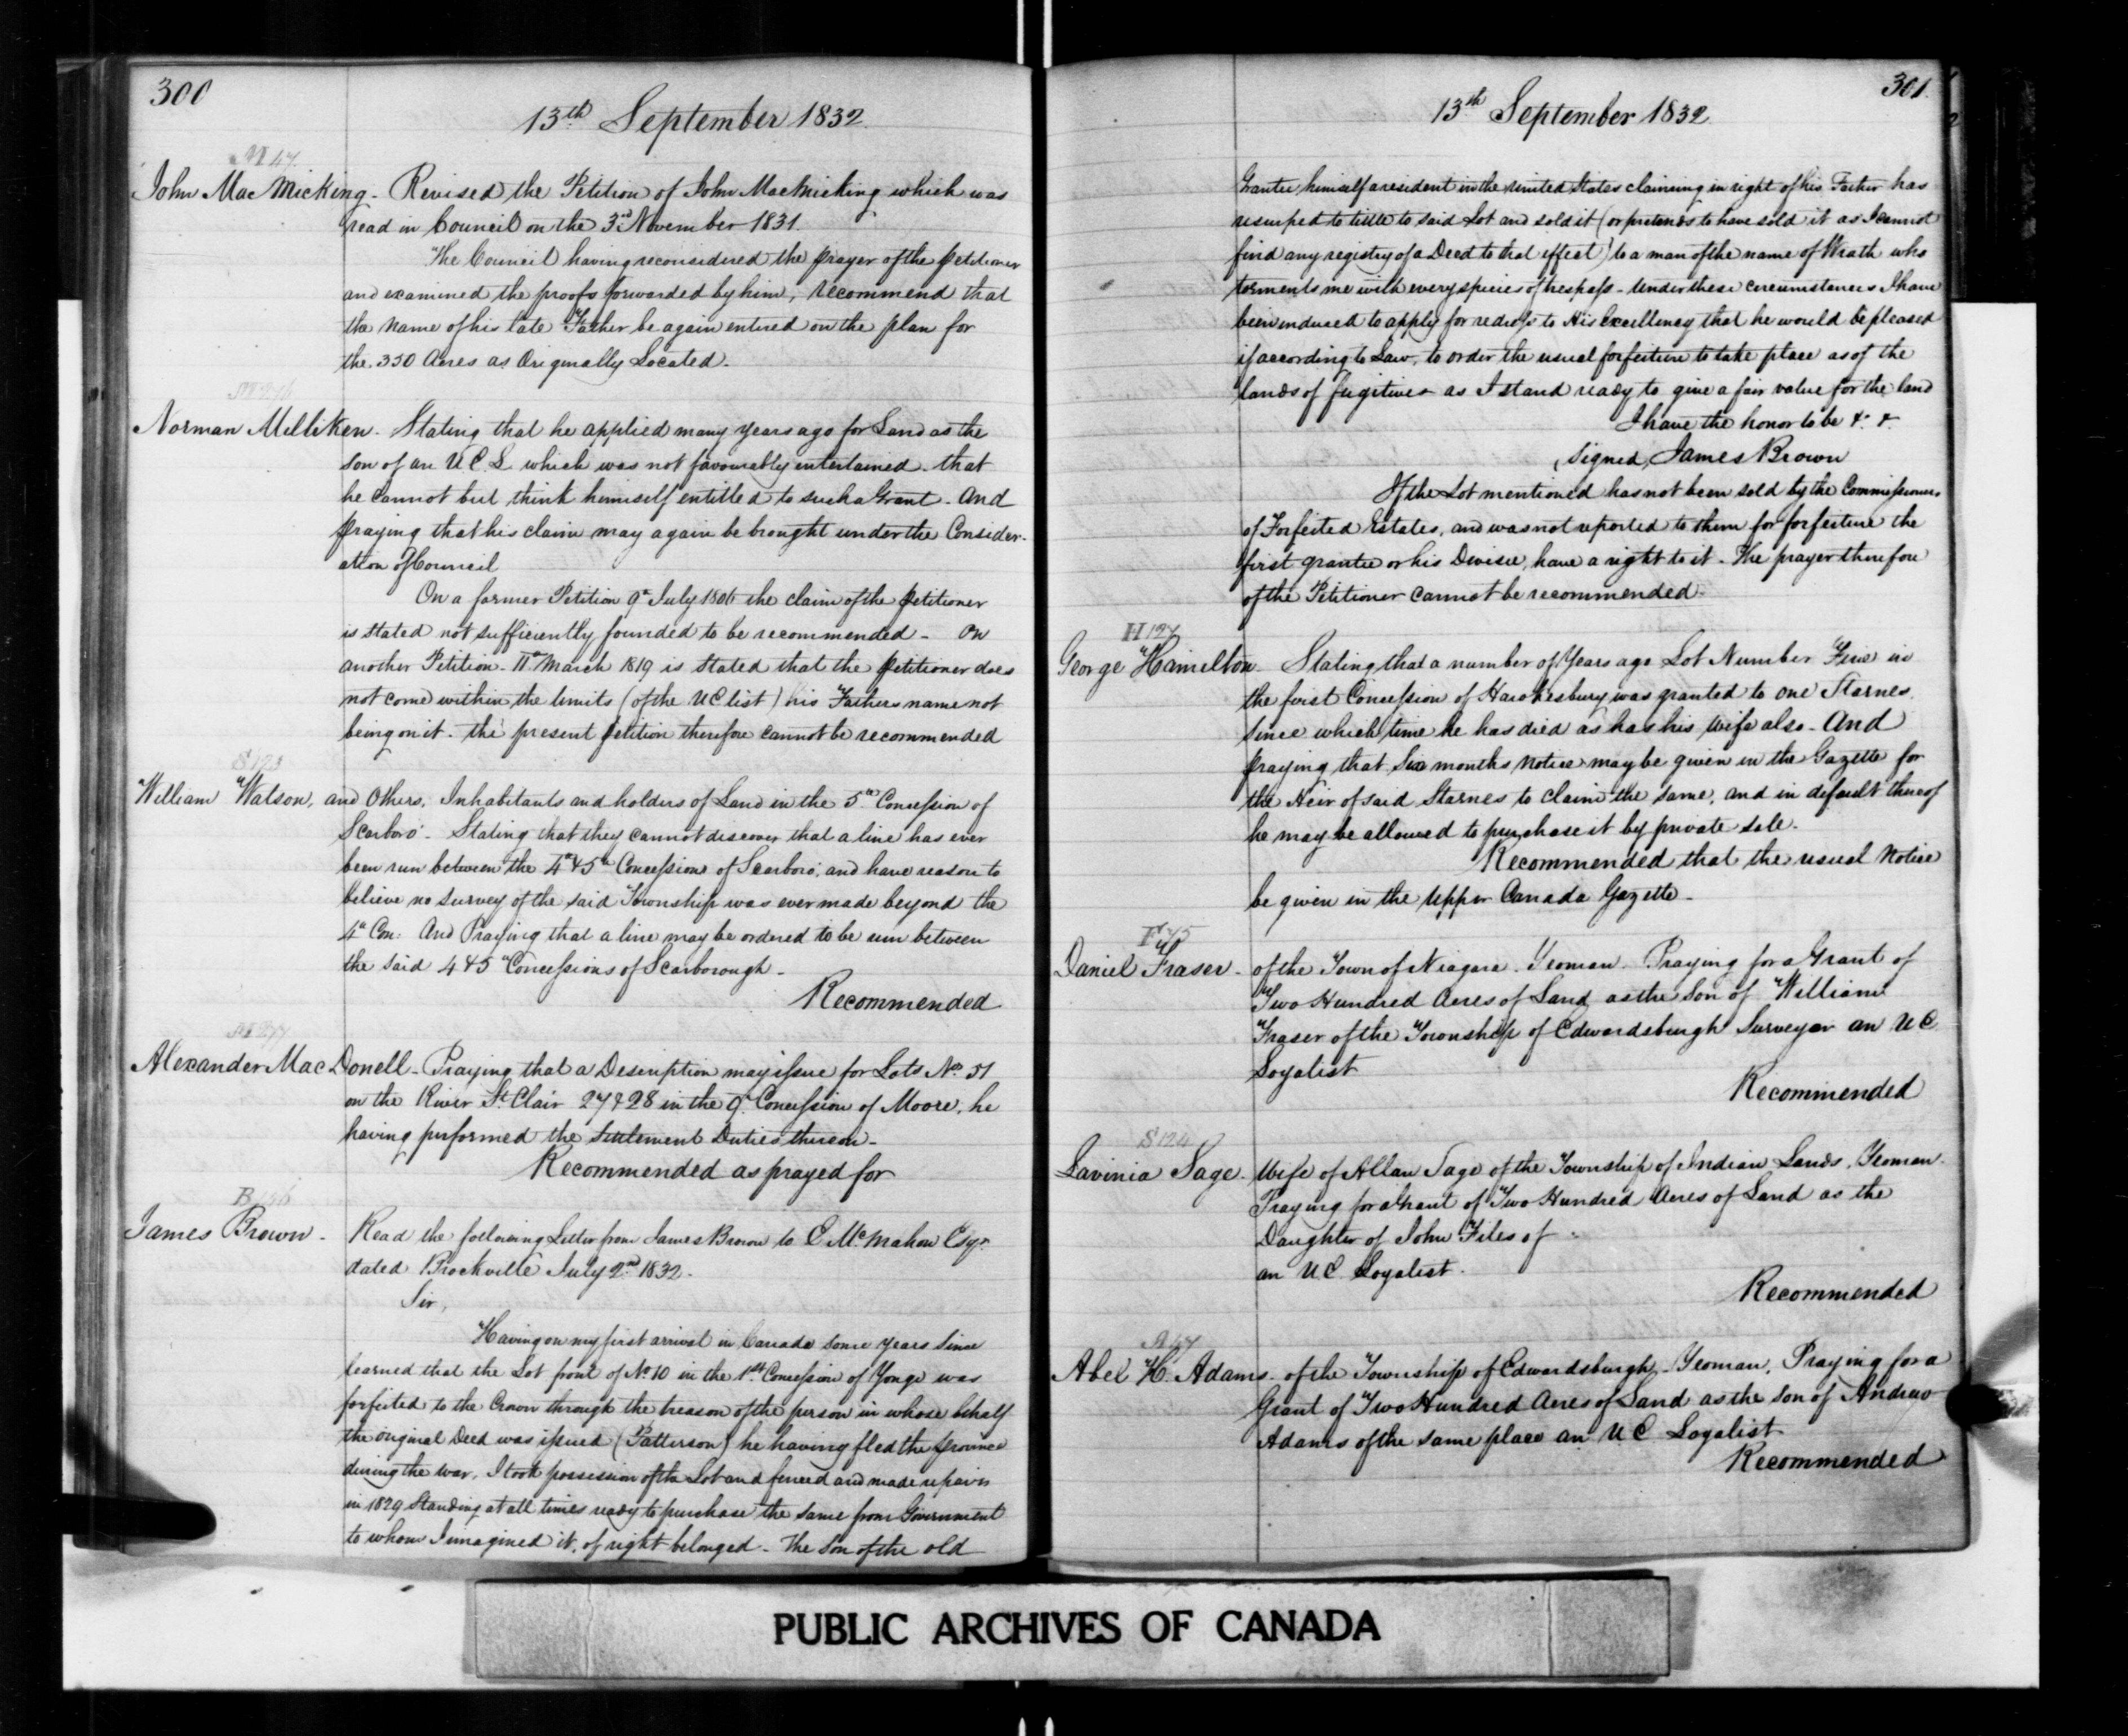 300
13th September 1832
M 47.
John MacMicking - Revised the Petition of John MacMicking which was
read in Council on the 3rd November 1831.
The Council having reconsidered the prayer of the petitioner
and examined the proofs forwarded by him, recommend that
the name of his late Father be again entered on the plan for
the 350 Acres as Originally Located.
Norman Milliken - Stating that he applied many years ago for Land as the
son of an U.E.L which was not favourably entertained - that
he cannot but think himself entitled to such a Grant - And
praying that his claim may again be brought under the Consider-
ation of Council
On a former Petition 9th July 1806 the claim of the petitioner
is stated not sufficiently founded to be recommended - On
another Petition - 11th March 1819 is stated that the petitioner does
not come within the limits (of the UE list) his Fathers name not
being on it - the present petition therefore cannot be recommended
S 123
William Watson, and Others, Inhabitants and holders of Land in the 5th Concession of
Scarboro' - Stating that they cannot discover that a line has ever
been run between the 4th & 5th Concessions of Scarboro', and have reason to
believe no survey of the said Township was ever made beyond the
4th Con: And Praying that a line may be ordered to be run between
the said 4 & 5th Concessions of Scarborough -
Recommended
M 277
Alexander MacDonell - Praying that a Description may issue for Lots No. 51
on the River St. Clair 27 & 28 in the 9th Concession of Moore, he
having performed the Settlement Duties thereon -
Recommended as prayed for
B
James Brown - Read the following Letter from James Brown to E McMahon Esqr.
dated Brockville July 2nd 1832 -
Sir,
Having on my first arrival in Canada some years since
learned that the Lot front of No 10 in the 1st Concession of Yonge was
forfeited to the Crown through the treason of the person in whose behalf
the original Deed was issued (Patterson) he having fled the province
during the war, I took possession of the Lot and fenced and made repairs
in 1829 Standing at all times ready to purchase the same from Government
to whom I imagined it, of right belonged - The Son of the old
301.
13th September 1832
Grantee himself a resident in the United States claiming in right of his Father has
resumped to title to said Lot and sold it (or pretends to have sold it as I cannot
find any registry of a Deed to that effect) to a man of the name of Wrath who
torments me with every species of trespass - Under these circumstances I have
been induced to apply for redress to His Excellency that he would be pleased
if according to Law, to order the usual forfeiture to take place as of the
lands of fugitives as I stand ready to give a fair value for the land
I have the honor to be &. &.
(signed, James Brown
If the Lot mentioned has not been sold by the Commissioners
of Forfeited Estates, and was not reported to them for forfeiture the
first grantee or his Devisee, have a right to it - The prayer therefore
of the Petitioner cannot be recommended -
H 127
George Hamilton - Stating that a number of Years ago Lot Number Five in
the first Concession of Hawkesbury was granted to one Starnes,
since which time he has died as has his wife also - And
praying that Six months notice may be given in the Gazette for
the Heir of said Starnes to claim the same, and in default thereof
he may be allowed to purchase it by private sale.
Recommended that the usual Notice
be given in the Upper Canada Gazette -
F 45
Daniel Fraser - of the Town of Niagara. Yeoman - Praying for a Grant of
Two Hundred Acres of Land as the Son of William
Fraser of the Township of Edwardsburgh Surveyor an U E
Loyalist
Recommended
S 124
Lavinia Sage - Wife of Allan Sage of the Township of Indian Lands, Yeoman -
Praying for a Grant of Two Hundred Acres of Land as the
Daughter of John Files of
an U.E Loyalist.
Recommended
A 47
Abel H. Adams - of the Township of Edwardsburgh - Yeoman, Praying for a
Grant of Two Hundred Acres of Land as the son of Andrew
Adams of the same place an U E Loyalist
Recommended
PUBLIC ARCHIVES OF CANADA